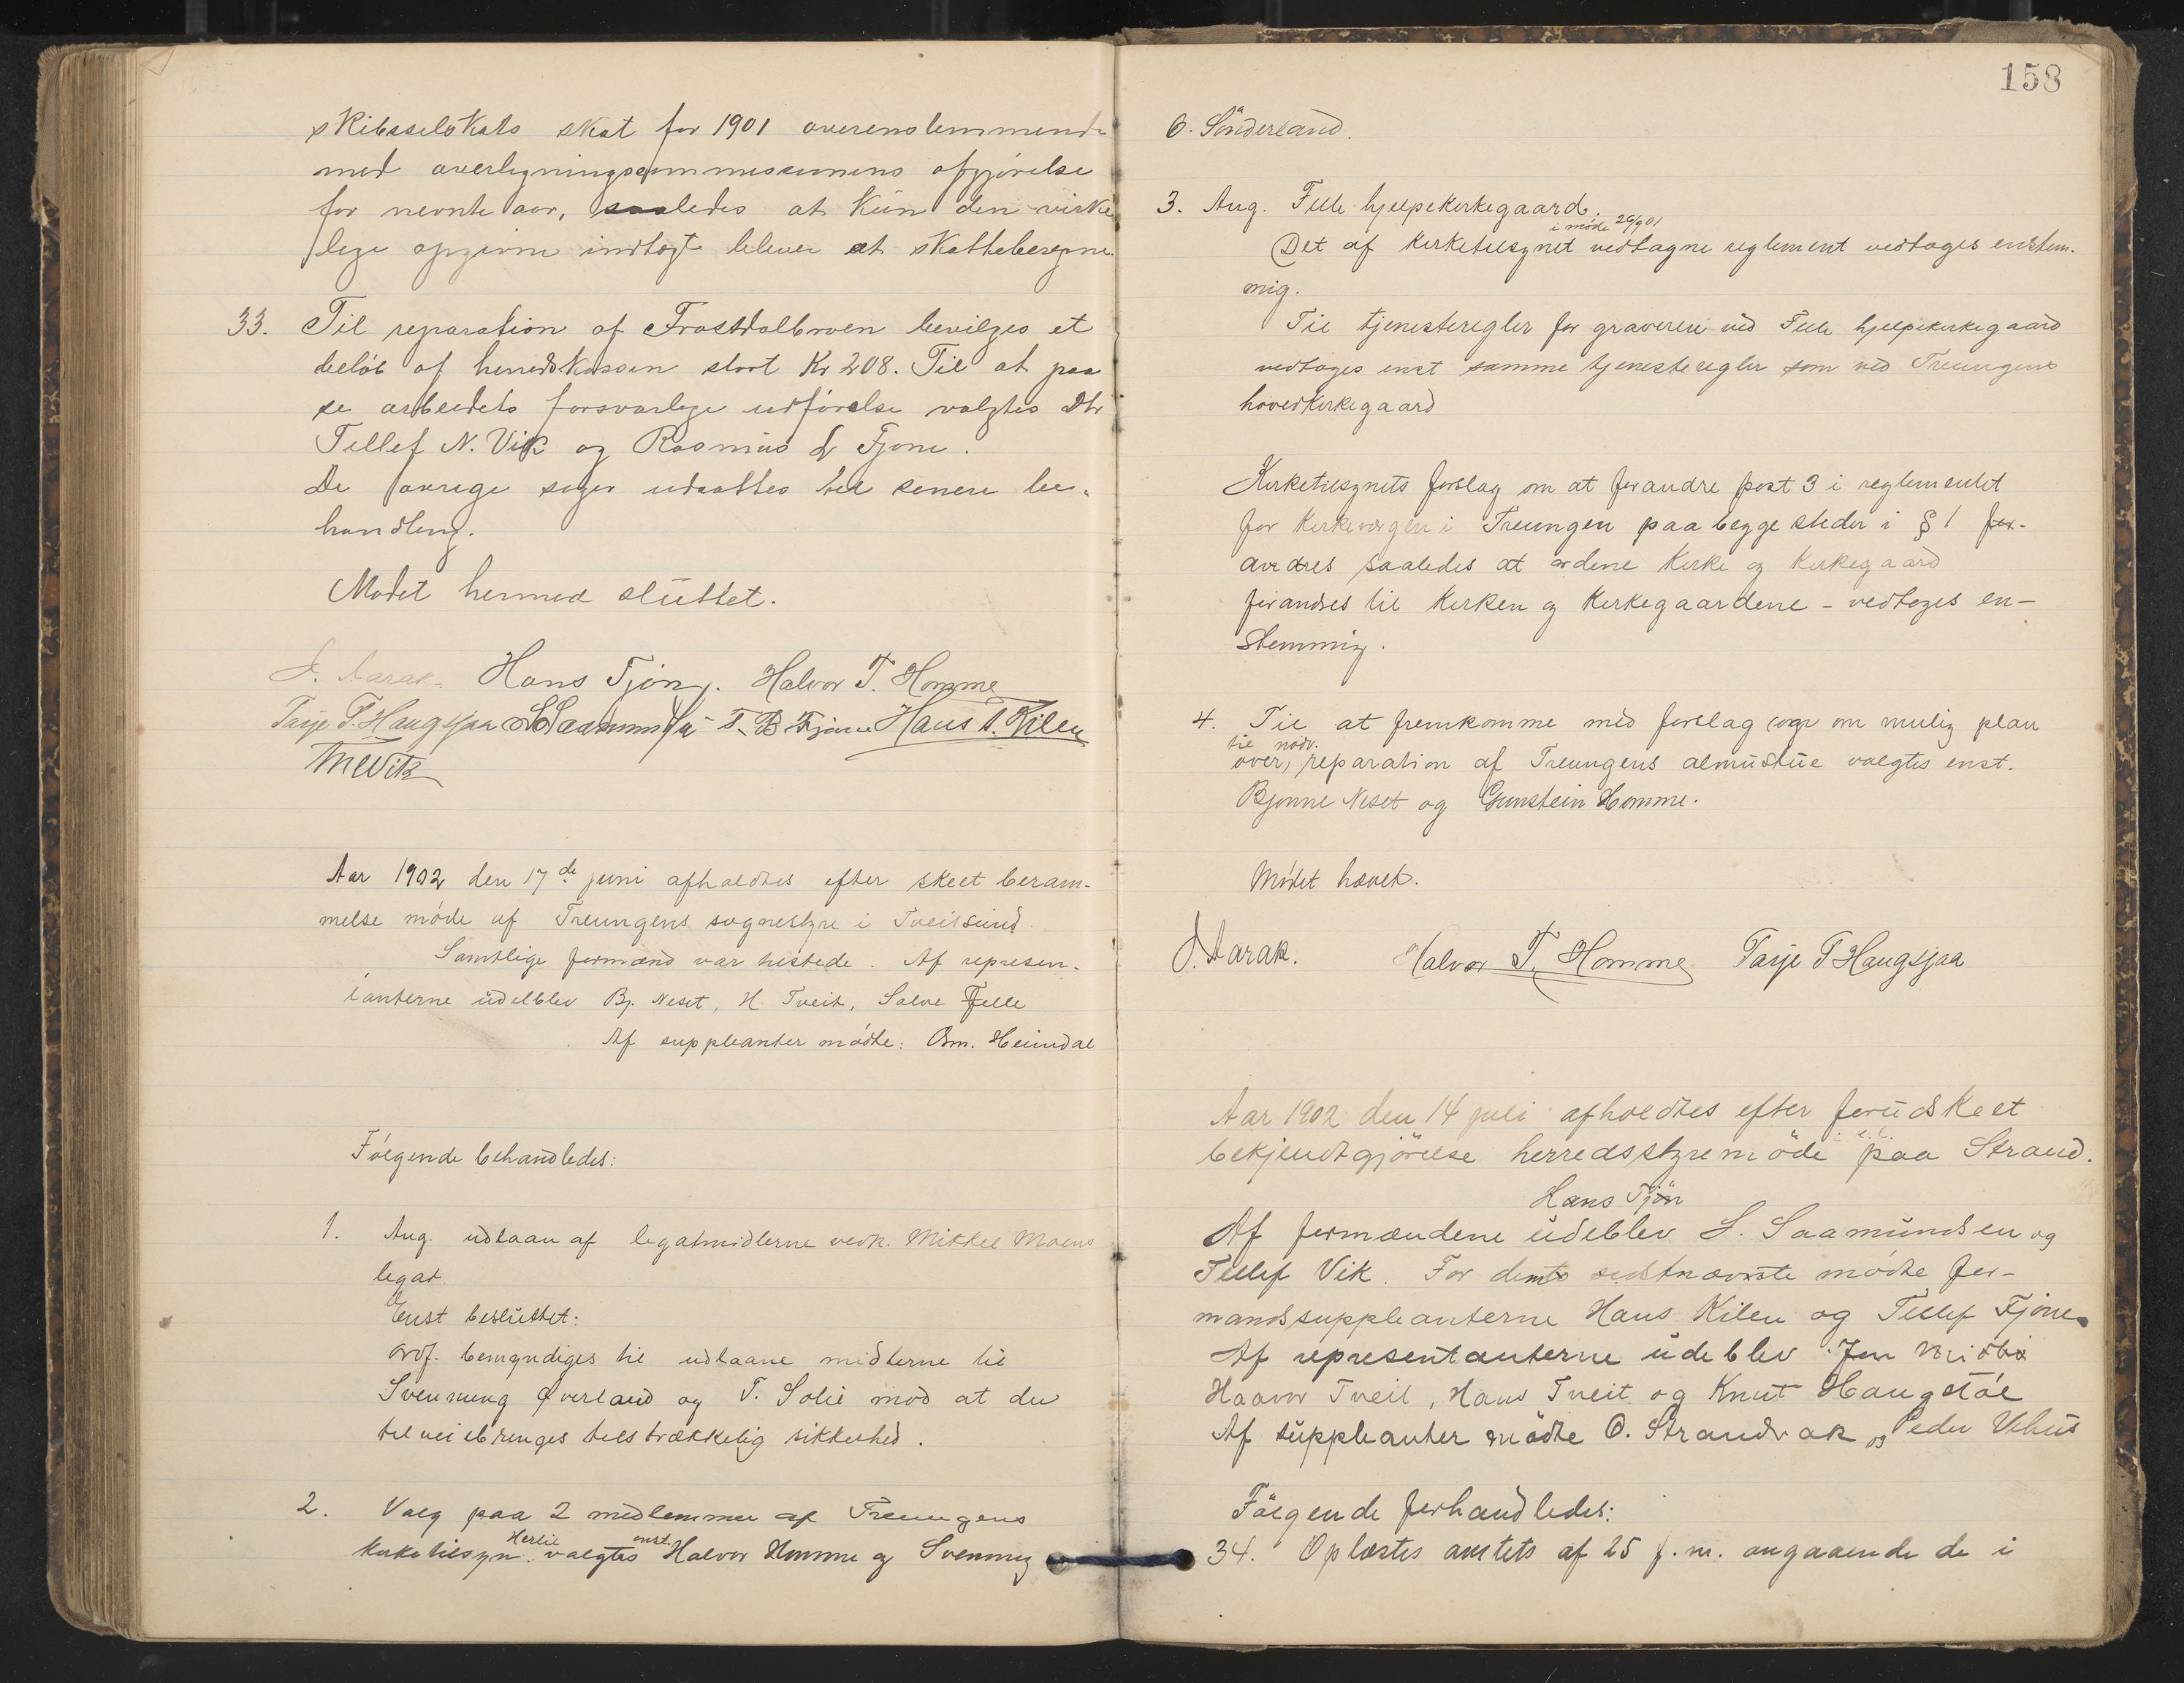 skibsselskabs skat for 1901 overenstemmende
med overligningscommissionens afgjörelse
for nevnte aar, saaledes at kun den virke
lige opgivne indtægt bliver at skatteberegne.
33. Til reparation af Frostdalbroen bevilges et
belöb af herredskassen stort Kr 208. Til at paa
se arbeidets forsvarlige udförelse valgtes Dhr
Tellef N. Vik og Rasmus Fjone.
De övrige sager udsattes til senere be-
handling.
Modet hermed sluttet.
J. Aarak. Hans Tjönn. Halvor T. Homme
Tarje T. Haugsjaa S Saamundsen T. B. Fjone Hans A. Kilen
TN Vik
Aar 1902 den 17de juni afholdtes efter skeet beram-
melse möde af Treungens sognestyre i Tveitsund.
Samtlige formænd var tilstede. Af represen-
tanterne udeblev Bj. Neset, H. Tveit, Salve Felle
Af suppleanter mödte: Osm. Heimdal
Fölgende behandledes:
1. Ang. udlaan af legatmidlerne vedk. Mikkel Moens
legat.
Enst besluttet:
Ordf. bemyndiges til udlaane midlerne til
Svennung Överland og T. Solli mod at der
tilveiebringes tilstrækkelig sikkerhed.
2. Valg paa 2 medlemmer af Treungens
kirketilsyn. Hertil valgtes enst. Halvor Homme og Svennug
158
O. Sönderland.
3. Ang. Felle hjelpekirkegaard.
i möde 26/9 01
Det af kirketilsynet vedtagne reglement vedtoges enstem-
mig.
Til tjenesteregler for graveren ved Felle hjelpekirkegaard
vedtoges enst samme tjenesteregler som ved Treungens
hovedkirkegaard
Kirketilsynets forslag om at forandre post 3 i reglementet
for kirkevergen i Treungen paa begge steder i § 1 for-
andres saaledes at ordene kirke og kirkegaard
forandres til kirken og kirkegaardene - vedtoges en-
stemmig.
4. Til at fremkomme med forslag om mulig plan
til nödv.
over, reparation af Treungens almustue valgtes enst.
Bjonne Neset og Gunstein Homme.
Mödet hævet.
J. Aarak. Halvor T. Homme Tarje T Haugsjaa
Aar 1902 den 14 juli afholdtes efter forudskeet
bekjendtgjörelse herredsstyremöde paa Strand.
Hans Tjön
Af formændene udeblev S. Saamundsen og
Tellef Vik. For de to sidstnævnte mödte for-
mandssuppleanterne Hans Kilen og Tellef Fjone.
Af representanterne udeblev Jen Midbö
Haavor Tveit, Hans Tveit og Knut Haugstöl
Af suppleanter mödte O. Strandrak og Peder Vehus
Fölgende forhandledes:
34. Oplæstes amtets af 25 f.m. angaaende de i